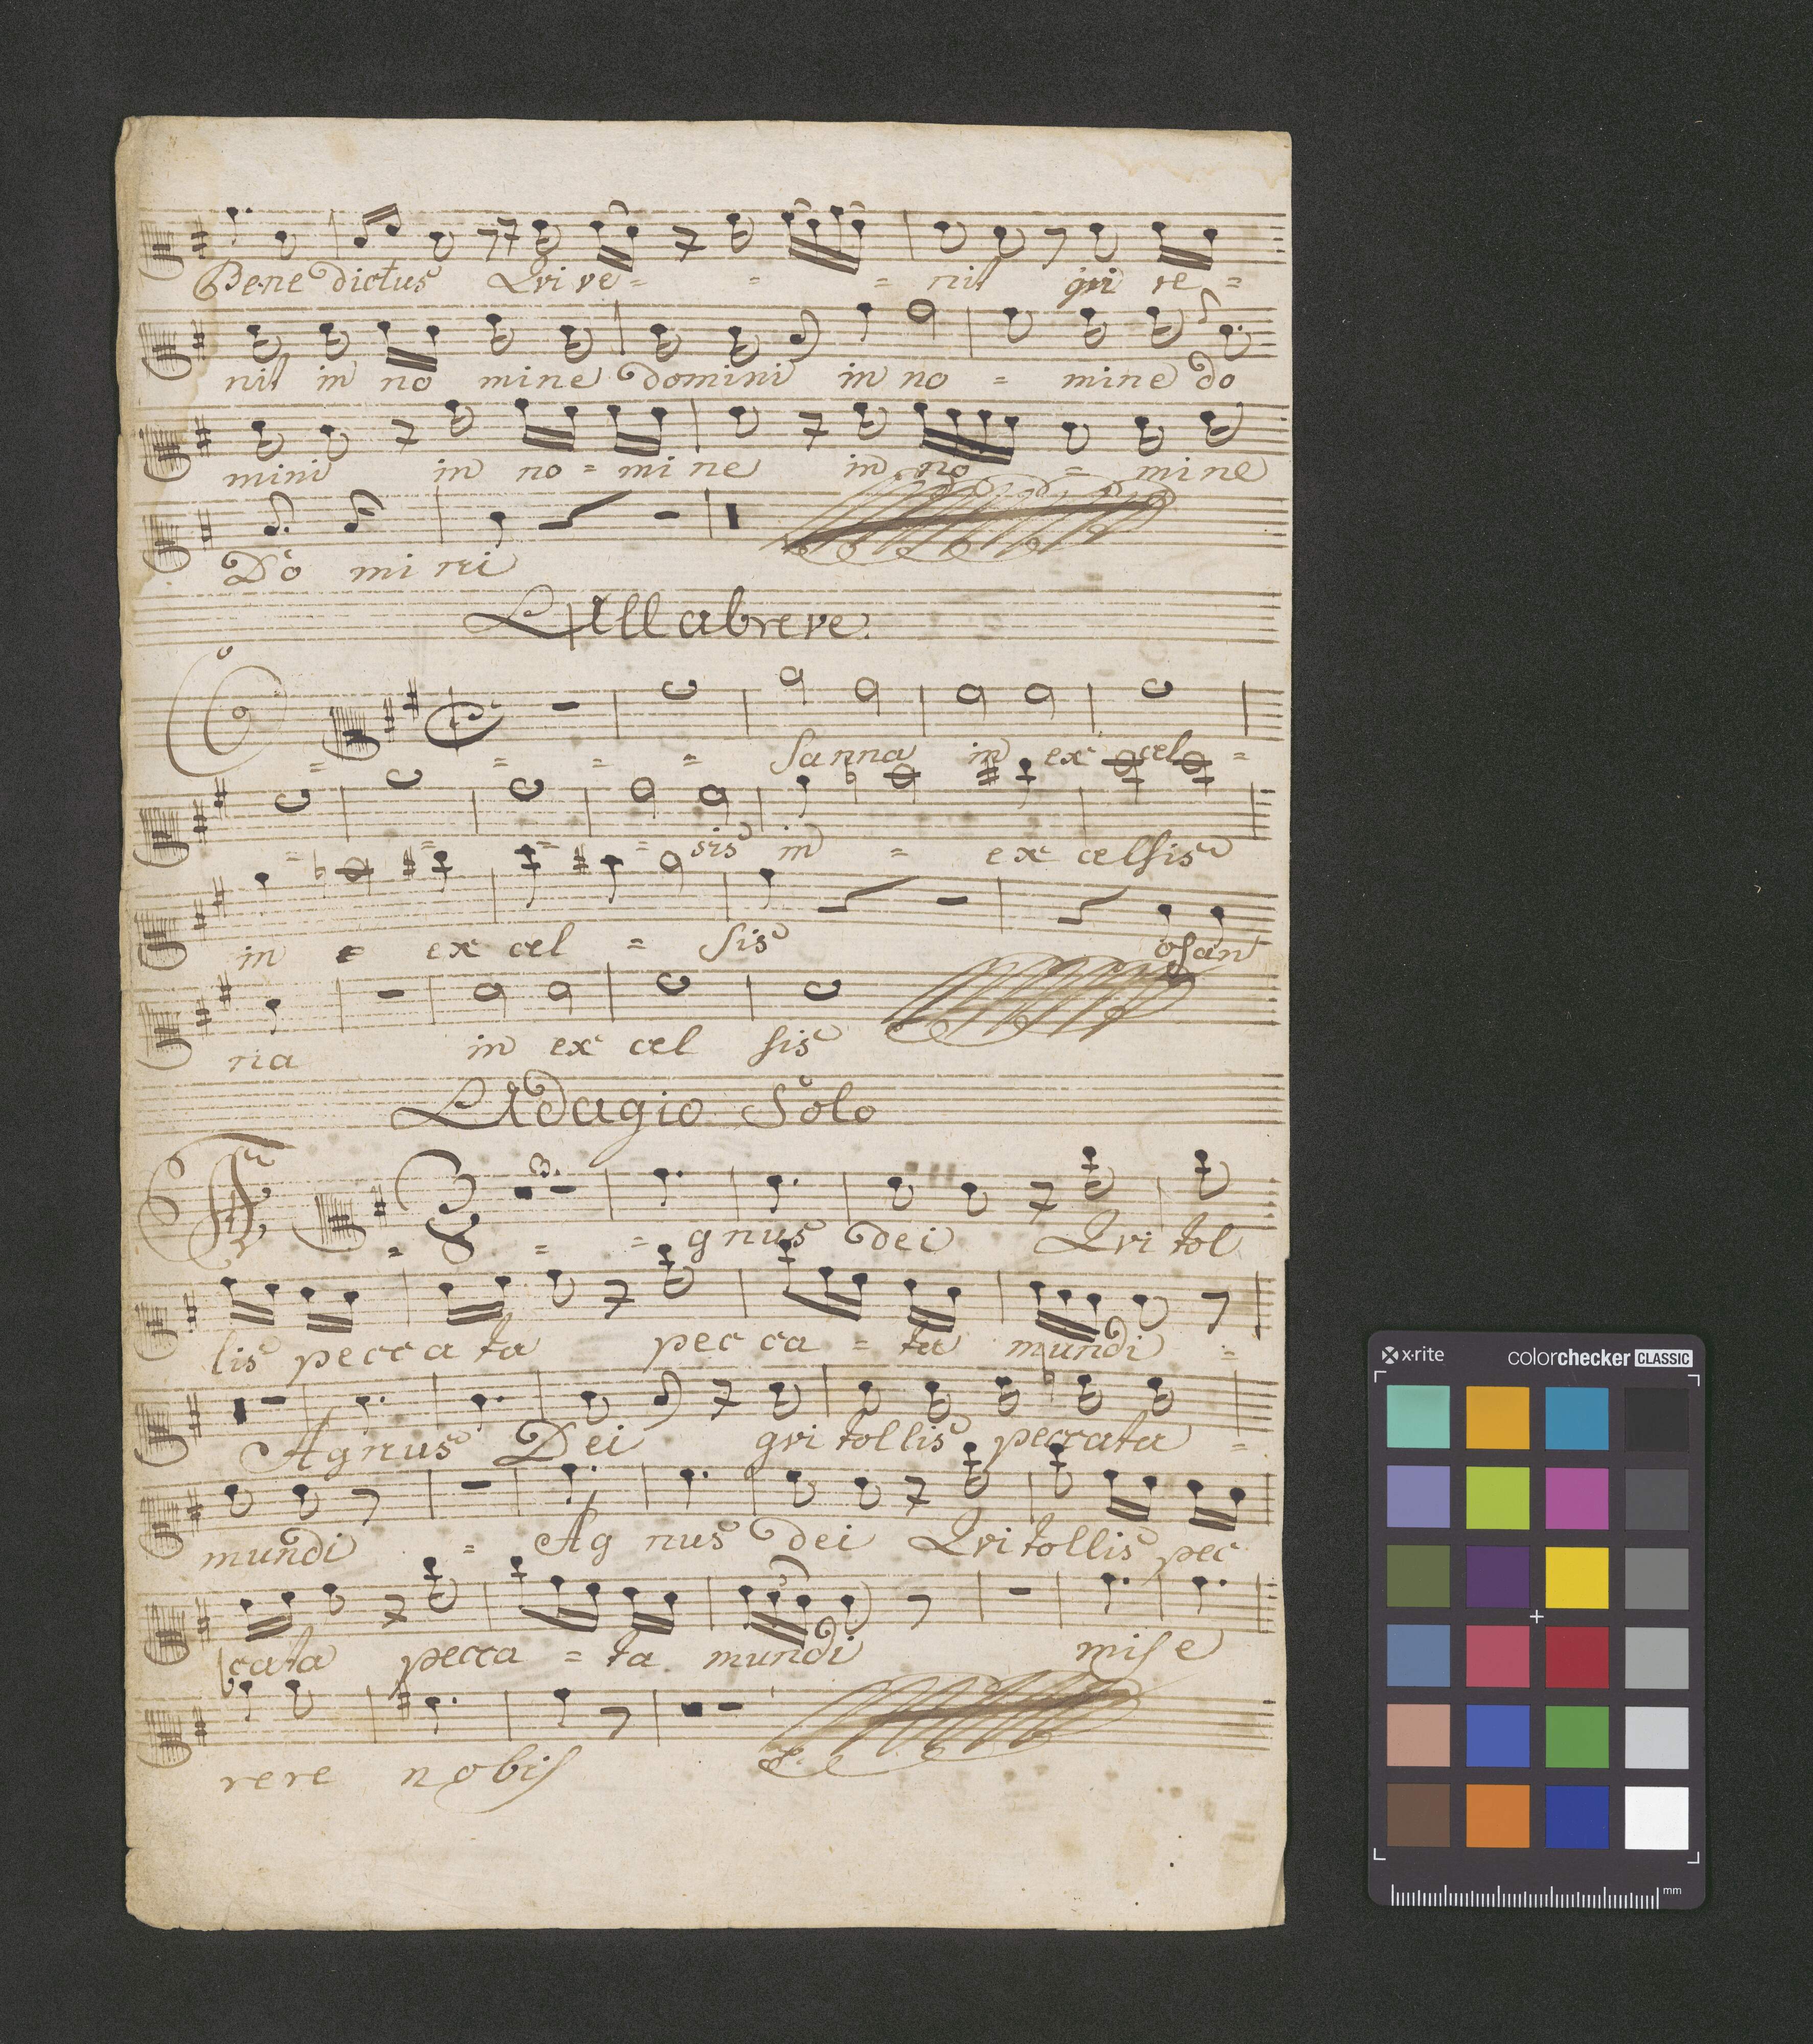 Benedictus Qvi ve = = = nit qvi ve =
nit in no mine domini in no = mine do
mini in no = mine in no = mine
Do mi ni
Allabreve.
O = = = = Sanna in ex cel =
= = = sis in = ex celsis
in e ex cel = sis osan
na in ex cel sis
Adagio Solo
A = = = gnus dei Qvi tol
lis pecca ta pec ca = ta mundi =
Agnus Dei qvi tollis peccata =
mundi = Ag nus dei Qvi tollis pec
cata pecca = ta mundi mise
rere nobis
x·rite colorchecker CLASSIC
mm